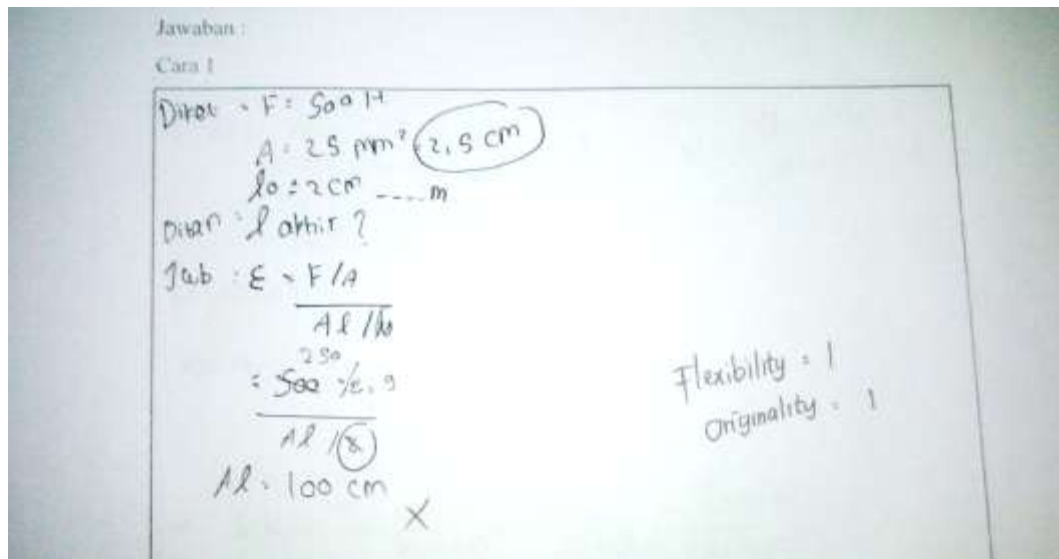 Jawaban :
Cara 1
Diket : F = 500 N
A = 25 mm² = 2,5 cm
lo = 2 cm ....m
Ditan : l akhir ?
Jab : E = F/A
Δl / lo
250
= 500
Δl /
Δl = 100 cm
X
Flexibility = 1
Originality = 1